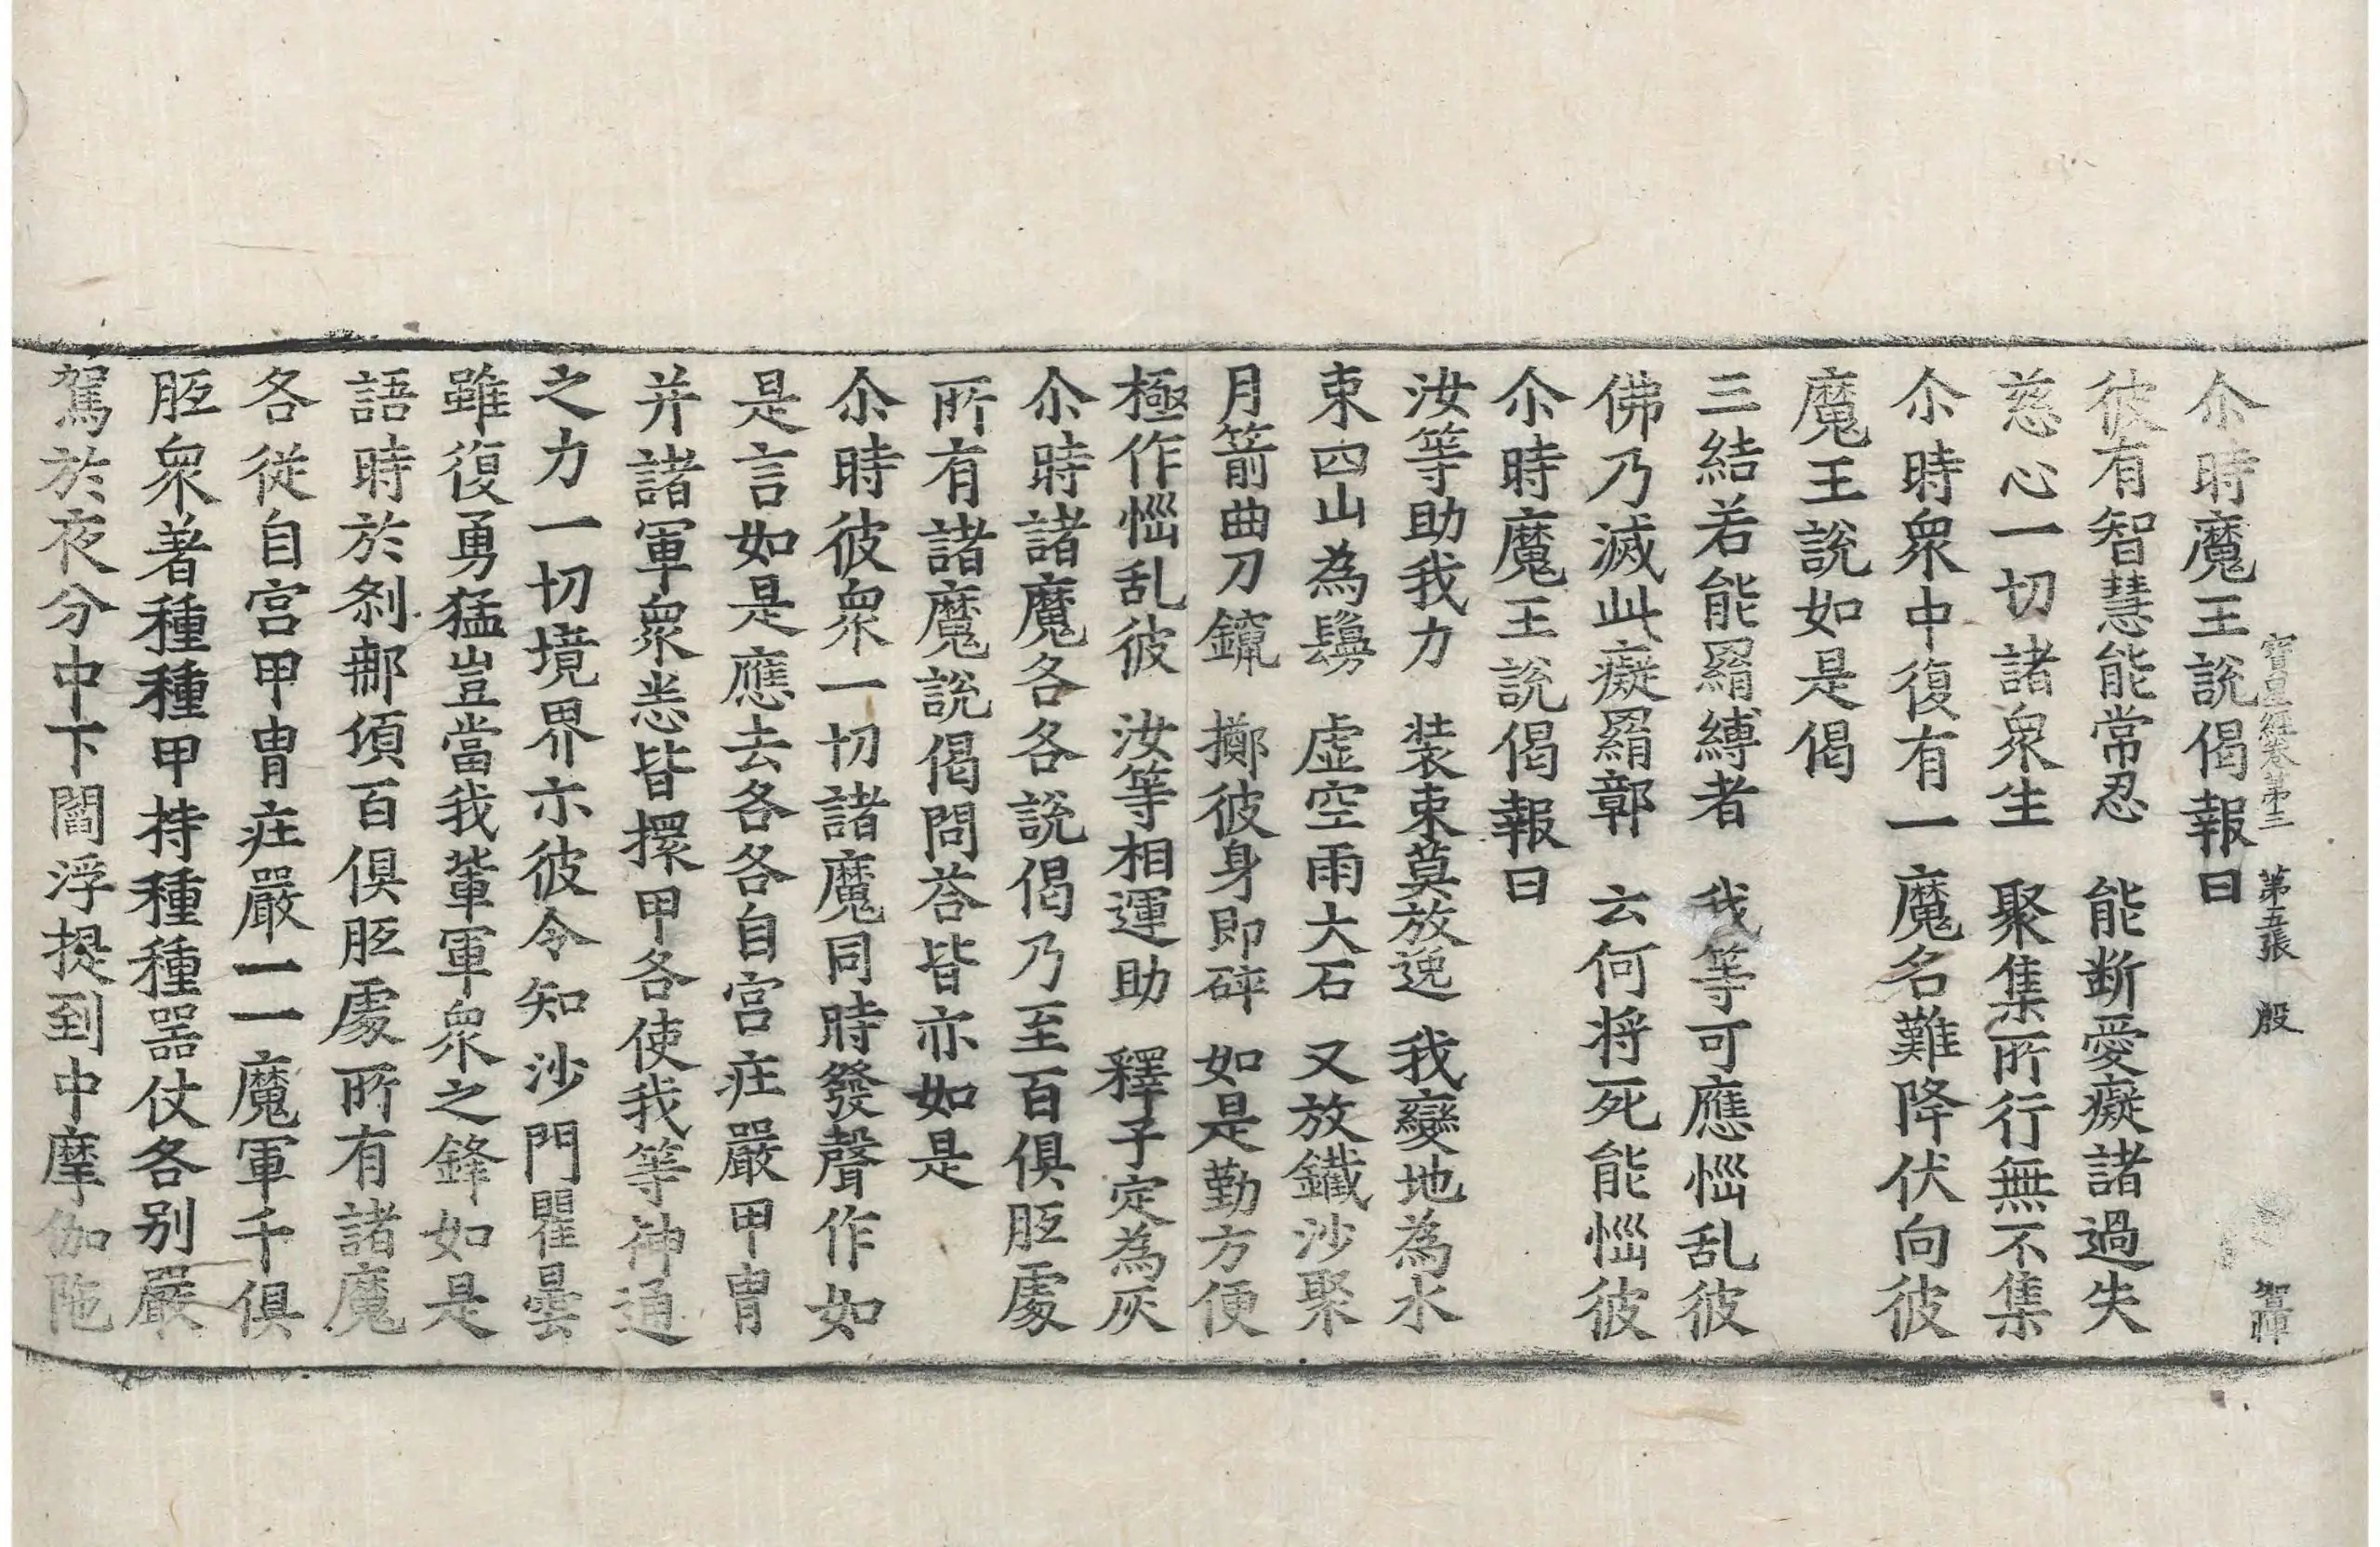 寶星經卷第三 第五張 殷
尒時魔王說偈報曰
彼有智慧能常忍 能斷愛癡諸過失
慈心一切諸衆生 聚集所行無不集
尒時衆中復有一魔名難降伏向彼
魔王說如是偈
三結若能羂縛者 我等可應惱乱彼
佛乃滅此癡羂鄣 云何将死能惱彼
尒時魔王說偈報曰
汝等助我力 装束莫放逸 我變地為水
束四山為鬘 虛空雨大石 又放鐵沙聚
月箭曲刀鑹 擲彼身即碎 如是勤方便
極作惱乱彼 汝等相運助 釋子定為灰
尒時諸魔各各說偈乃至百俱胝處
所有諸魔說偈問荅皆亦如是
尒時彼衆一切諸魔同時發聲作如
是言如是應去各各自宮庄嚴甲冑
并諸軍衆悉皆擐甲各使我等神通
之力一切境界示彼令知沙門瞿曇
雖復勇猛豈當我輩軍衆之鋒如是
語時於刹𨚗頃百俱胝處所有諸魔
各從自宮甲冑庄嚴一一魔軍千俱
胝衆著種種甲持種種器仗各別嚴
駕於夜分中下閻浮提到中摩伽陁